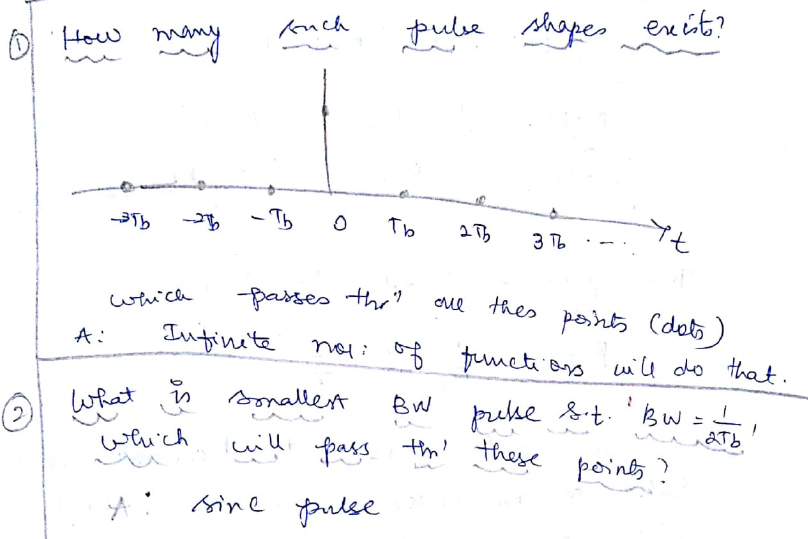 ① How many such pulse shapes exists?
-3Tb -2Tb -Tb 0 Tb 2Tb 3Tb ... t
which passes thr' all thes points (dots)
A: Infinite nos: of functions will do that.
② What is smallest BW pulse s.t. 'BW = 1/2Tb'
which will pass thr' these points?
A: sinc pulse